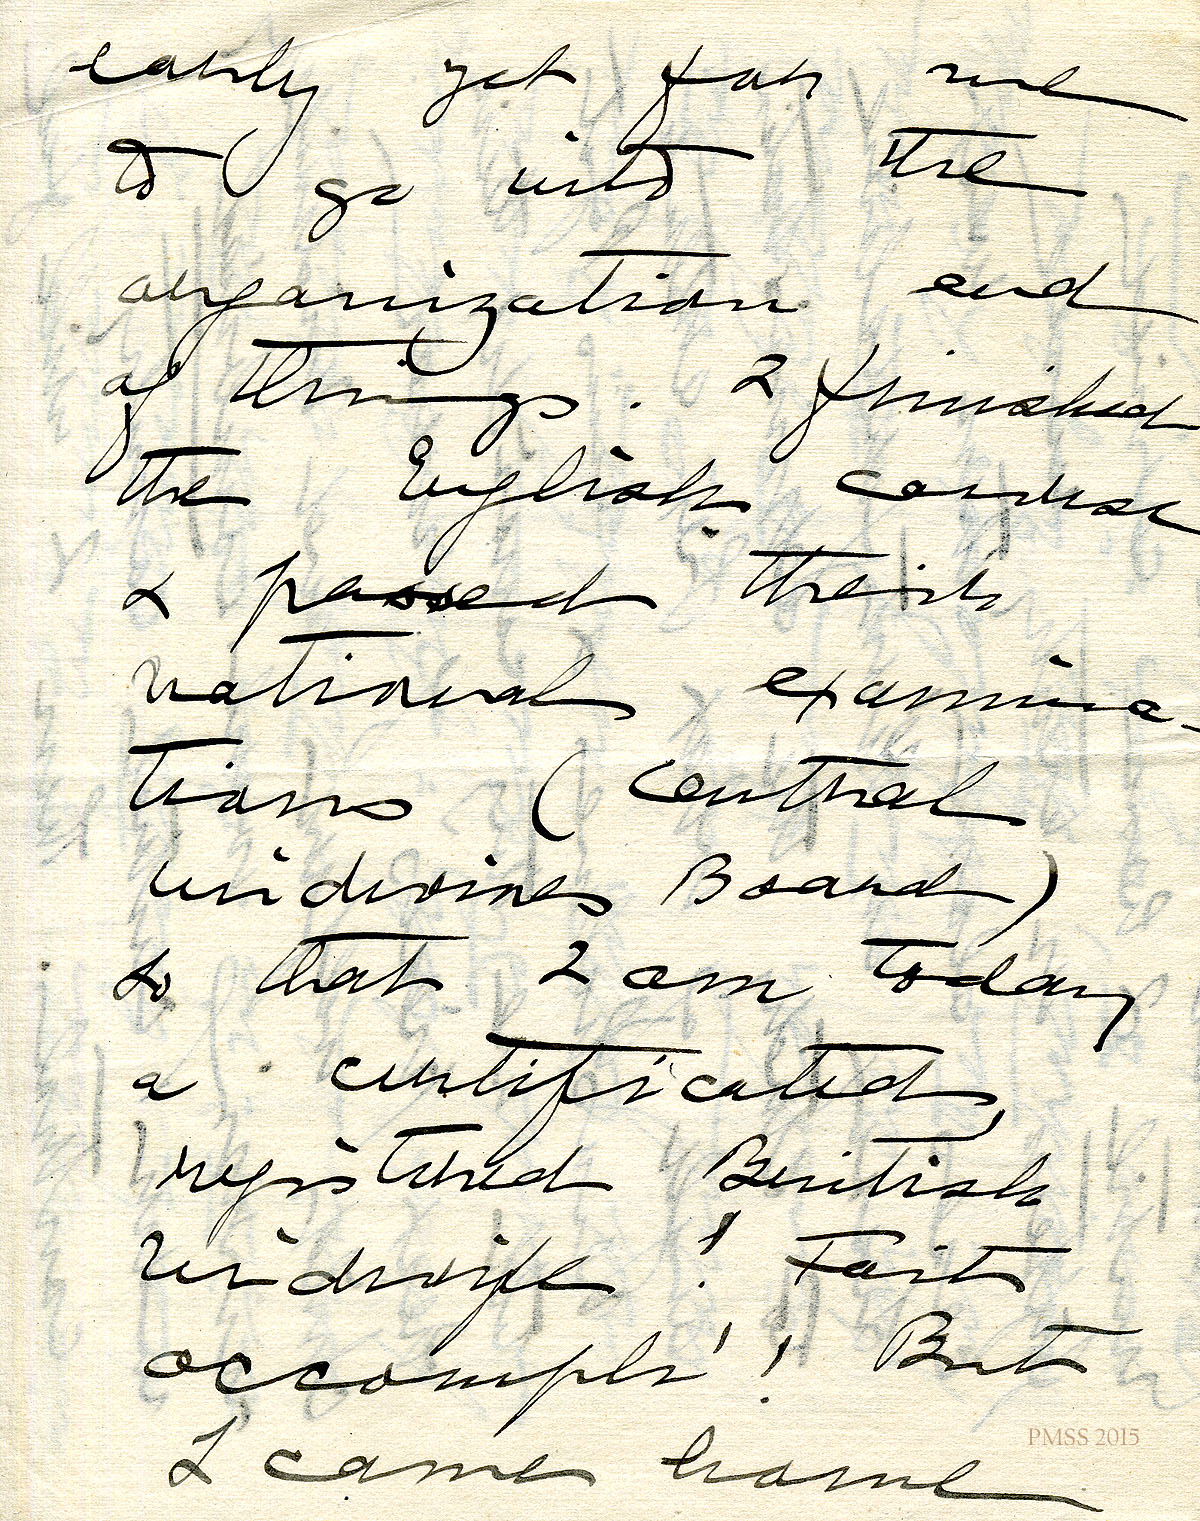 early yet for me
to go into the
organization end
of things. I finished
the English course
& passed their
national examina-
tions (Central
Midwives Board)
so that I am today
a certificated,
registered British
Midwife! Fait
accompli'! But
I came home
PMSS 2015